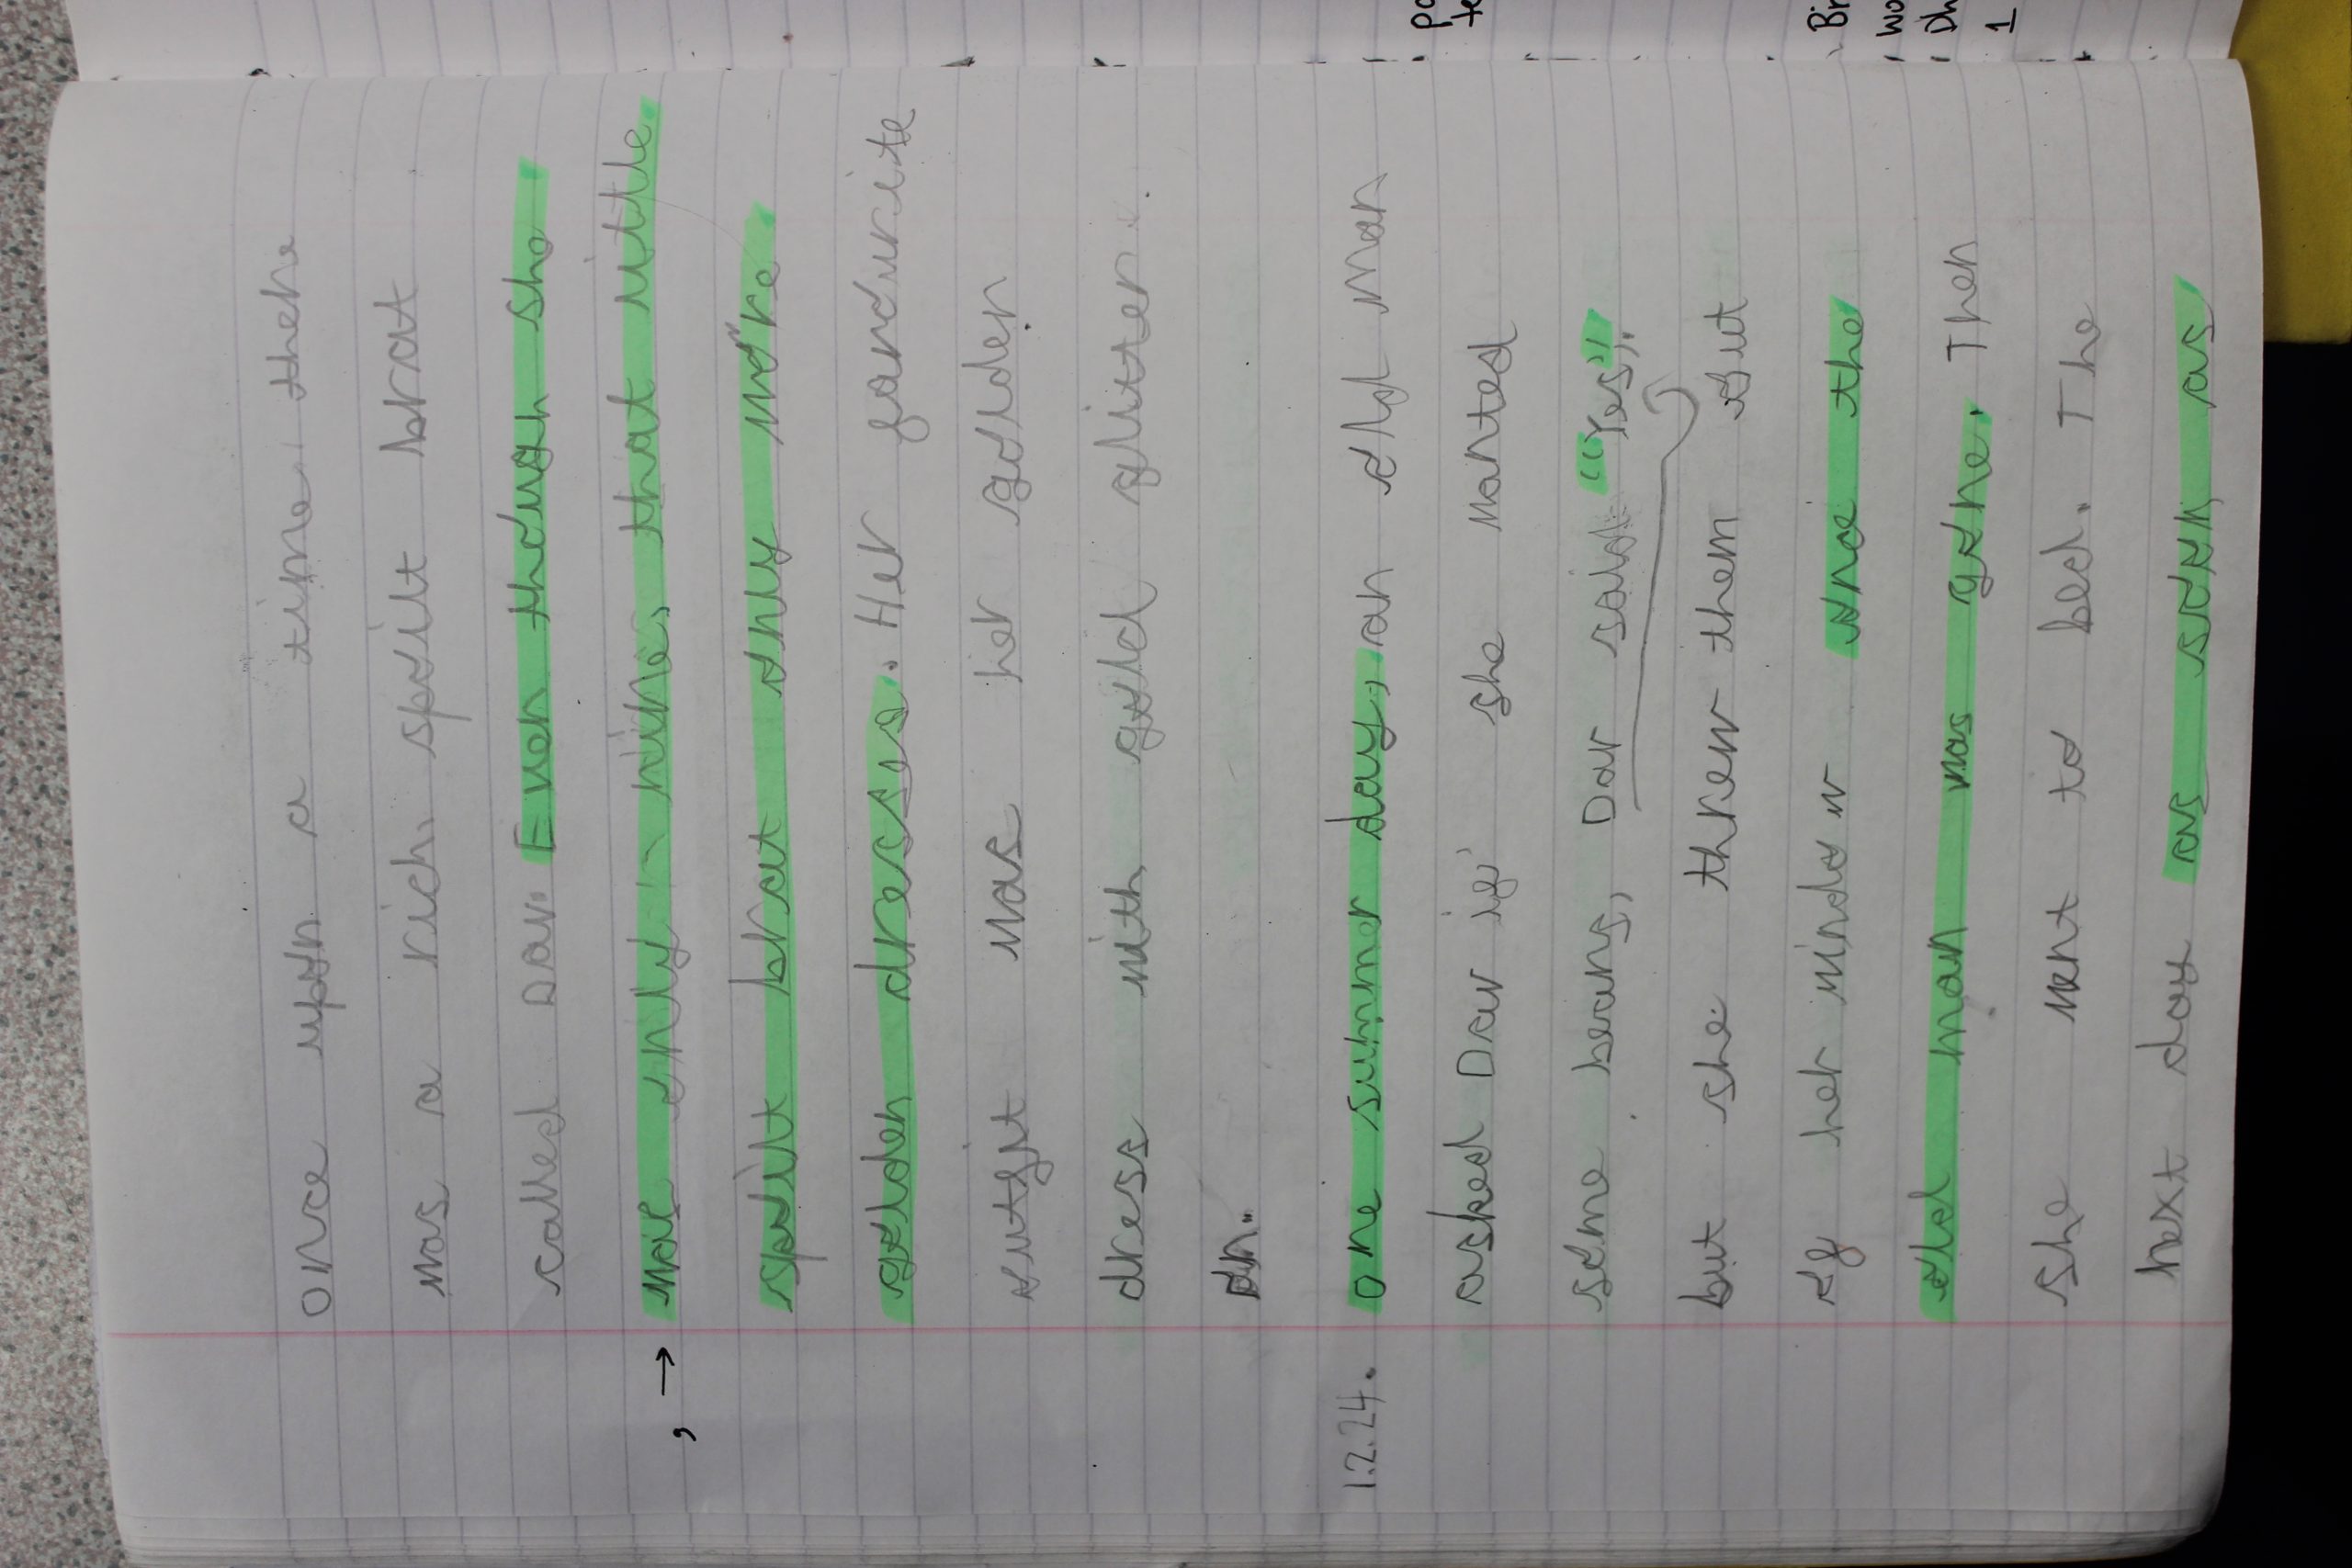 once upon a time there
was a rich spoilt brat
called Dav. Even though she
was only nine, that little
, →
spoilt brat only wore
golden dresses. Her favourite
outfit was her golden
dress with gold glitter
on.
1.2.24.
one summer day, an old man
asked Dav if she wanted
some beans, Dav said "Yes".
but she threw them out
of her window once the
old man was gone. Then
she went to bed. The
next day as soon as